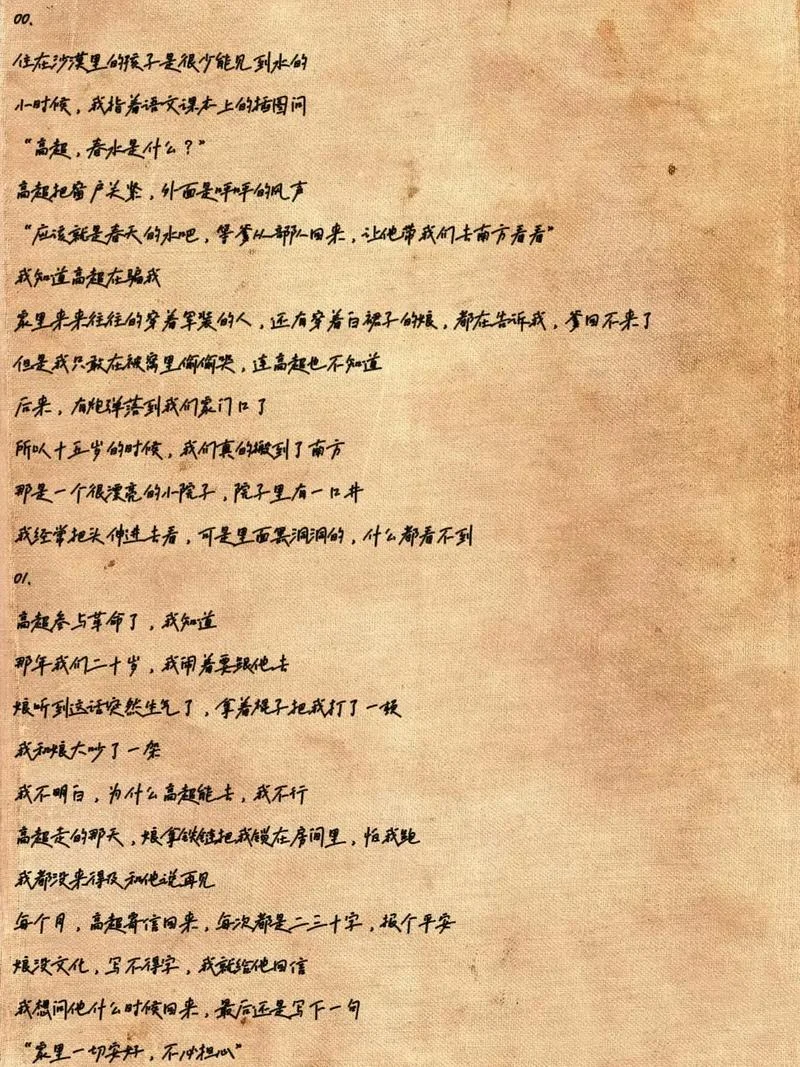 00、
住在沙漠里的孩子是很少能见到水的
小时候，我指着语文课本上的插图问
“高超，春水是什么？”
高超把窗户关紧，外面是呼呼的风声
“应该就是春天的水吧，等爹从部队回来，让他带我们去南方看看”
我知道高超在骗我
家里来来往往的穿着军装的人，还有穿着白裙子的娘，都在告诉我，爹回不来了
但是我只敢在被窝里偷偷哭，连高超也不知道
后来，有炮弹落到我们家门口了
所以十五岁的时候，我们真的搬到了南方
那是一个很漂亮的小院子，院子里有一口井
我经常把头伸进去看，可是里面黑洞洞的，什么都看不到
01、
高超参与革命了，我知道
那年我们二十岁，我闹着要跟他去
娘听到这话突然生气了，拿着棍子把我打了一顿
我和娘大吵了一架
我不明白，为什么高超能去，我不行
高超走的那天，娘拿铁链把我锁在房间里，怕我跑
我都没来得及和他说再见
每个月，高超寄信回来，每次都是二三十字，报个平安
娘没文化，写不得字，我就给他回信
我想问他什么时候回来，最后还是写下一句
“家里一切安好，不必担心”